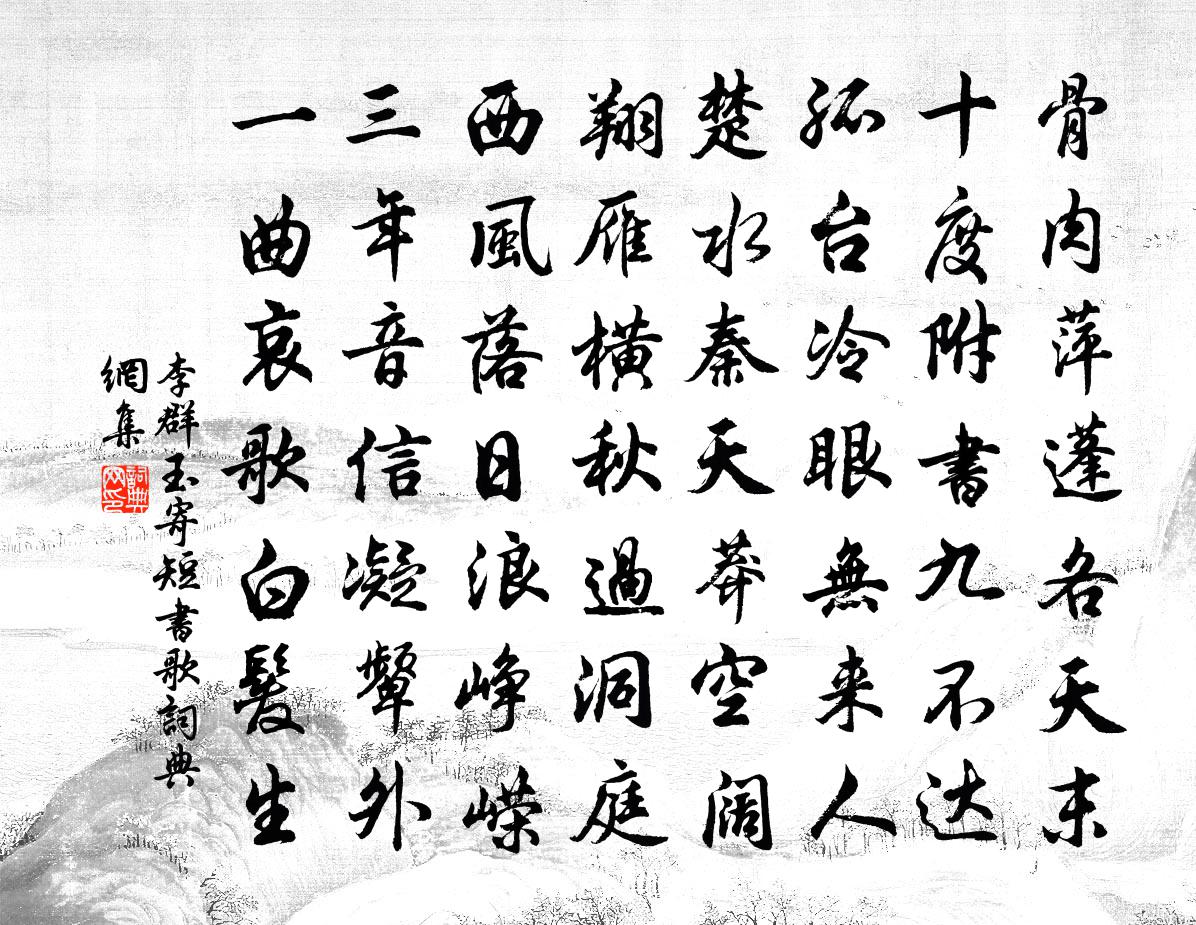 骨肉萍蓬各天末
十度附書九不达
孤台冷眼無来人
楚水秦天莽空阔
翔雁橫秋過洞庭
西風落日浪峥嶸
三年音信凝顰外
一曲哀歌白髮生
李群玉寄短書歌詞典
網集
詞典
网印